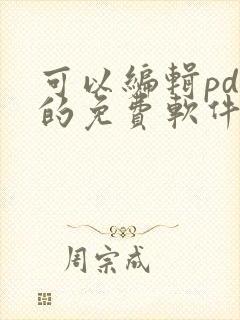 可以編輯pd
的免費軟件
周宗咸